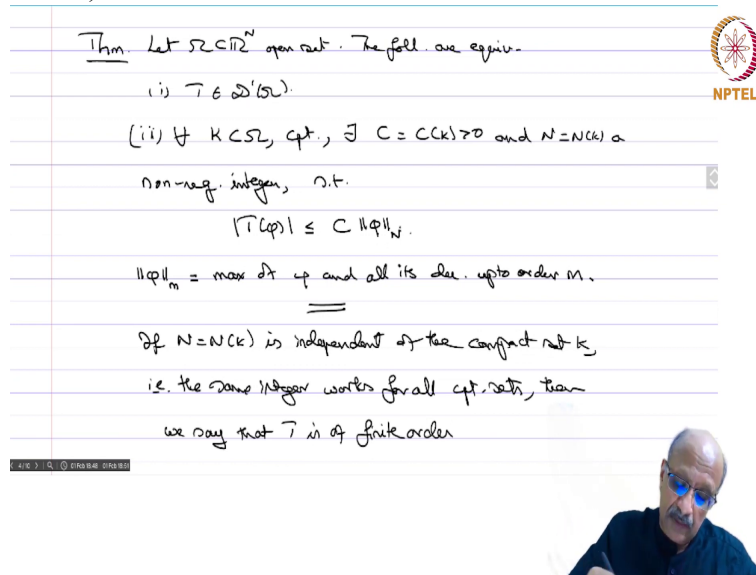 Thm. Let Ω ⊂ ℝ^N open set. The foll. are equiv.
(i) T ∈ 𝒟'(Ω).
(ii) ∀ K ⊂ Ω, cpt., ∃ C = C(K) > 0 and N = N(K) a
non-neg. integer, s.t.
|T(φ)| ≤ C ‖φ‖_N.
‖φ‖_m = max of φ and all its der. upto order m.
If N = N(K) is independent of the compact set K,
i.e. the same integer works for all cpt. sets, then
we say that T is of finite order
NPTEL
4/10
01 Feb 18:48 01 Feb 18:51